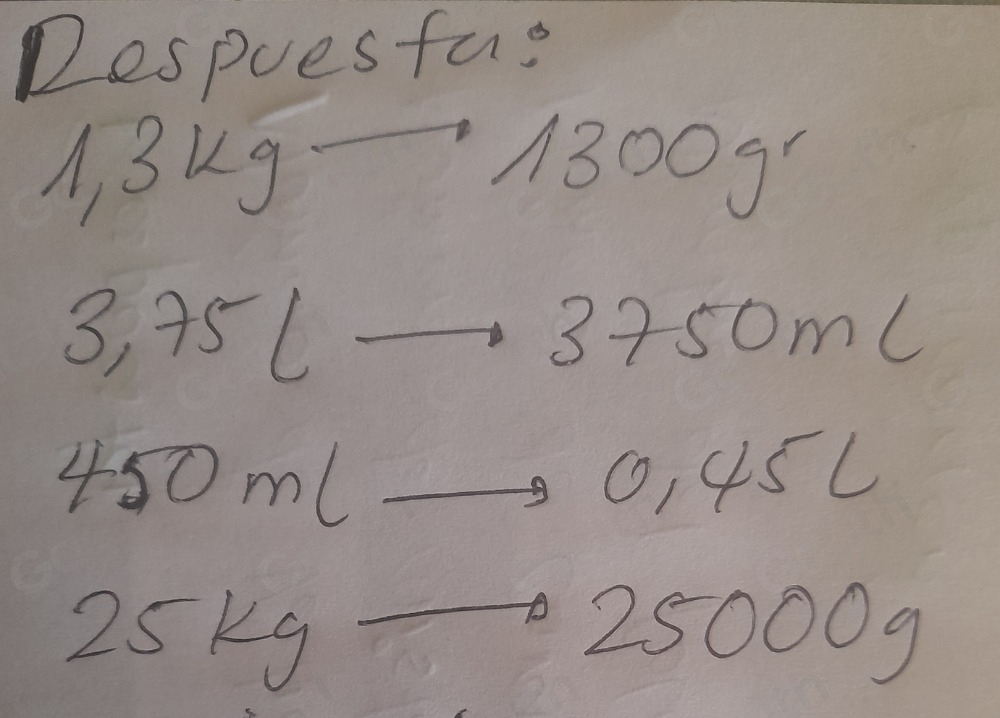 Respuesta:
1,3 Kg → 1300 gr
3,75 l → 3750 ml
450 ml → 0,45 l
25 Kg → 25000 g